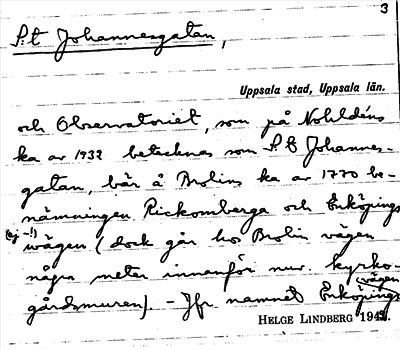 3
S:t Johannesgatan,
Uppsala stad, Uppsala län.
och Observatoriet, som på Nohldéns
ka av 1932 betecknas som S:t Johannes-
gatan, bär å Brolins ka av 1770 be-
nämningen Rickomberga och Enköpings
(ej -!)
wägen (dock går hos Brolin vägen
några meter innanför nuv. kyrko-
gårdsmuren). - Jfr namnet Enköpings
vägen
HELGE LINDBERG 194